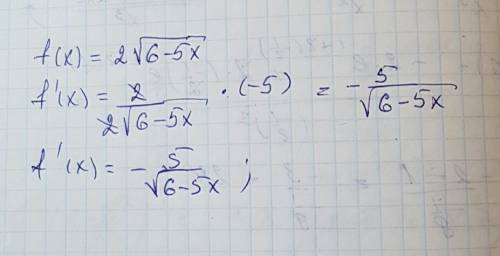 f(x) = 2√(6-5x)
f'(x) = 2/(2√(6-5x)) · (-5) = -5/√(6-5x)
f'(x) = -5/√(6-5x) ;